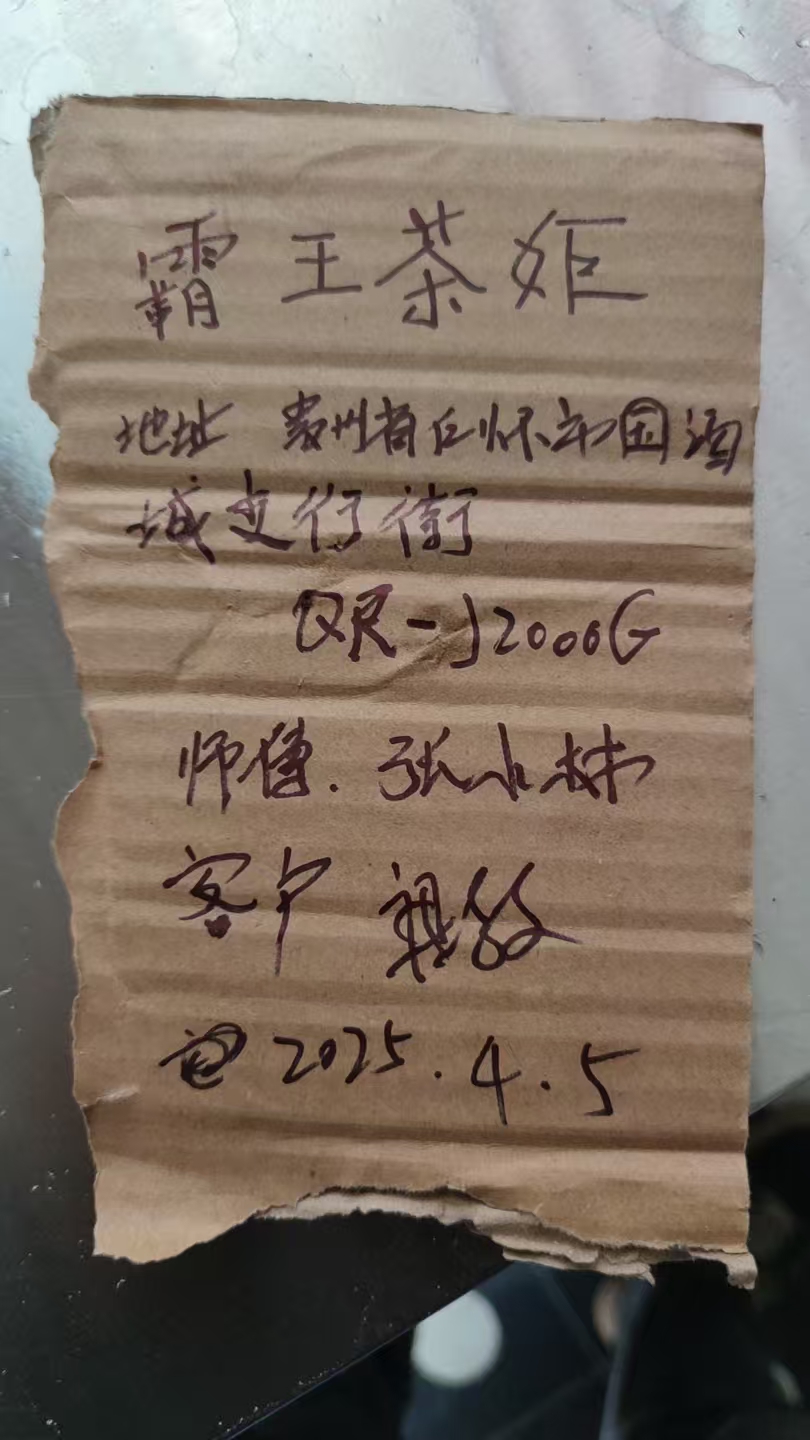 霸王茶姬
地址 贵州省仁怀市国酒
城支行街
QR-J2000G
师傅.张小林
客户
2025.4.5